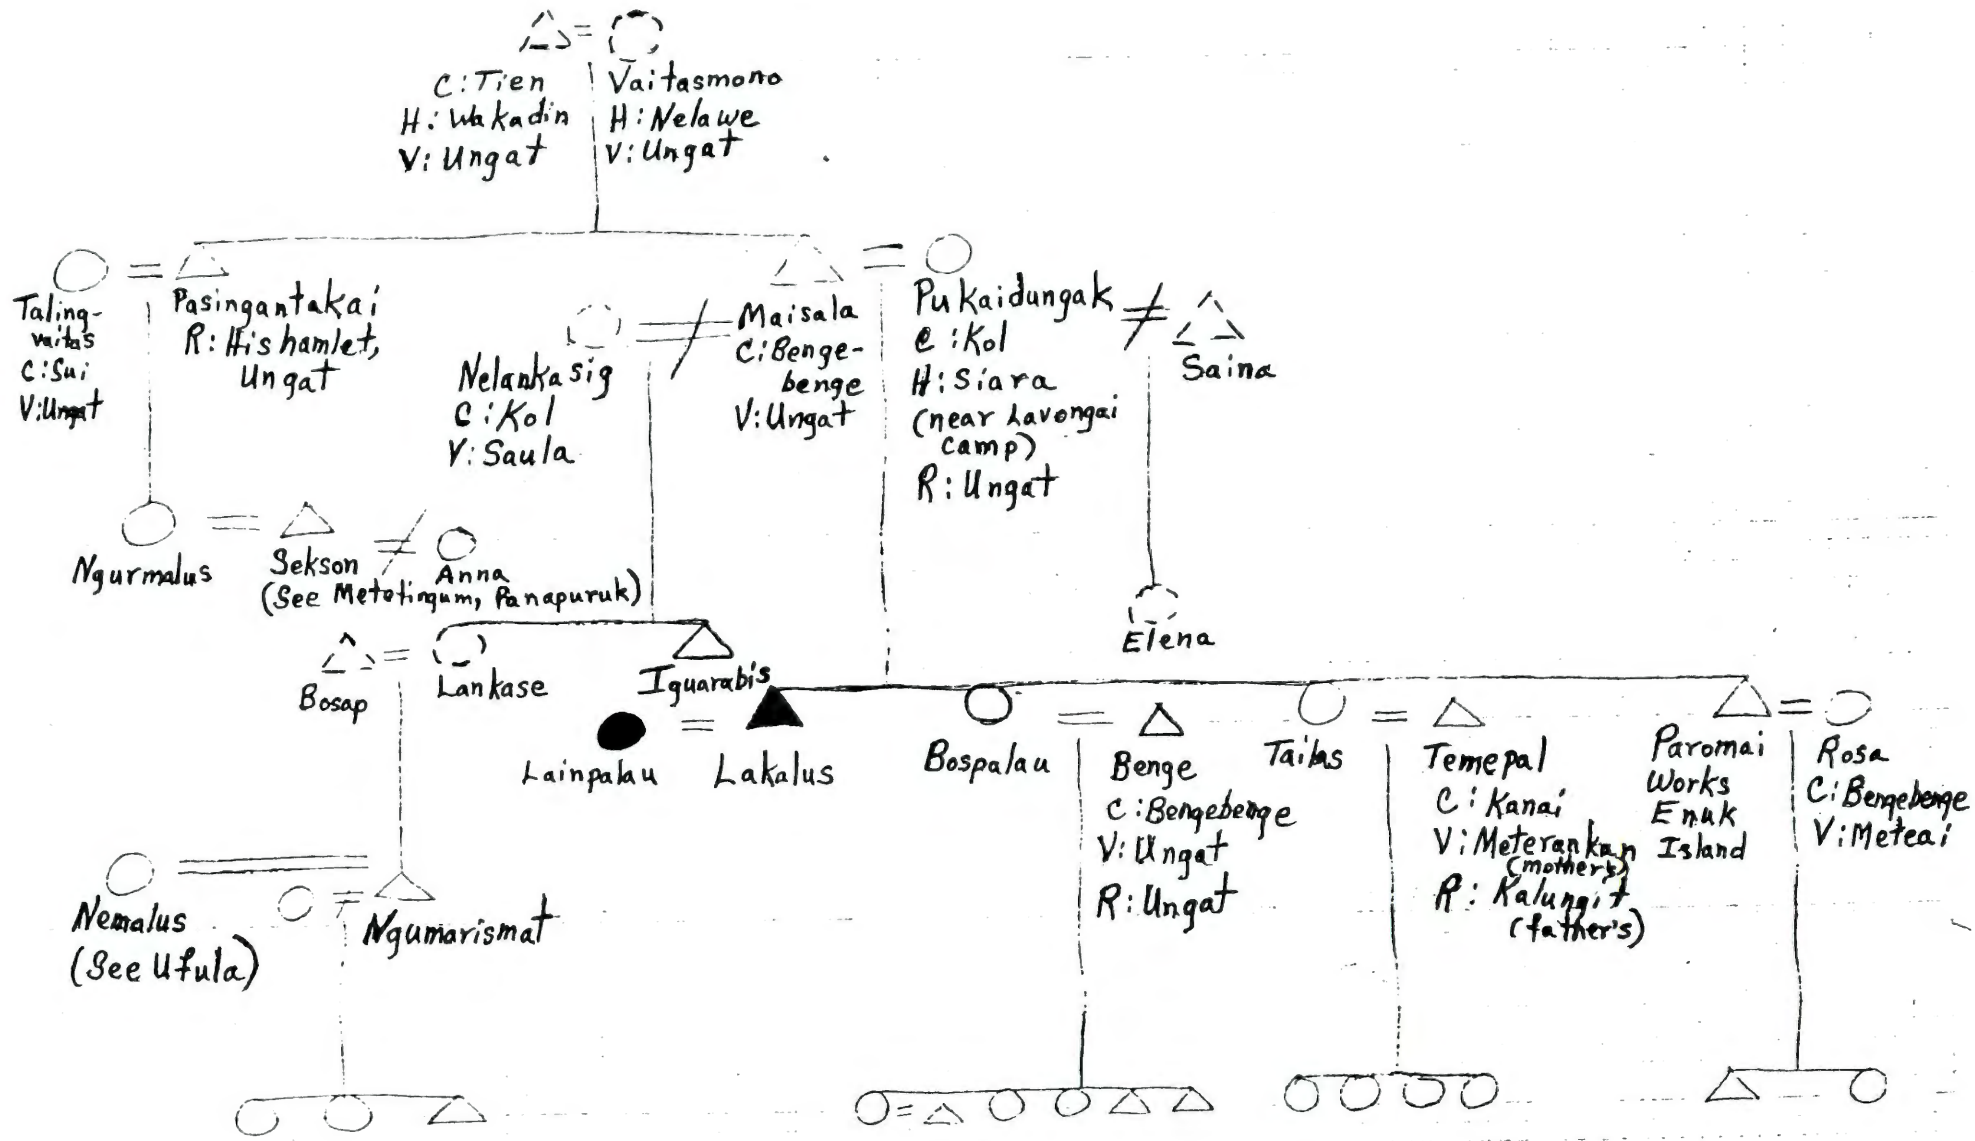 C: Tien
H: Wakadin
V: Ungat
Vaitasmono
H: Nelawe
V: Ungat
Taling-
vaitas
C: Sui
V: Ungat
Pasingantakai
R: His hamlet,
Ungat
Nelankasig
C: Kol
V: Saula
Maisala
C: Benge-
benge
V: Ungat
Pukaidungak
C: Kol
H: Siara
(near Lavongai
camp)
R: Ungat
Saina
Ngurmalus
Sekson
Anna
(See Metetingum, Panapuruk)
Elena
Bosap
Lankase
Iguarabis
Lainpalau
Lakalus
Bospalau
Benge
C: Bengebenge
V: Ungat
R: Ungat
Tailas
Temepal
C: Kanai
V: Meterankan
(mother's)
R: Kalungit
(father's)
Paromai
Works
Enuk
Island
Rosa
C: Bengebenge
V: Meteai
Nemalus
(See Ufula)
Ngumarismat